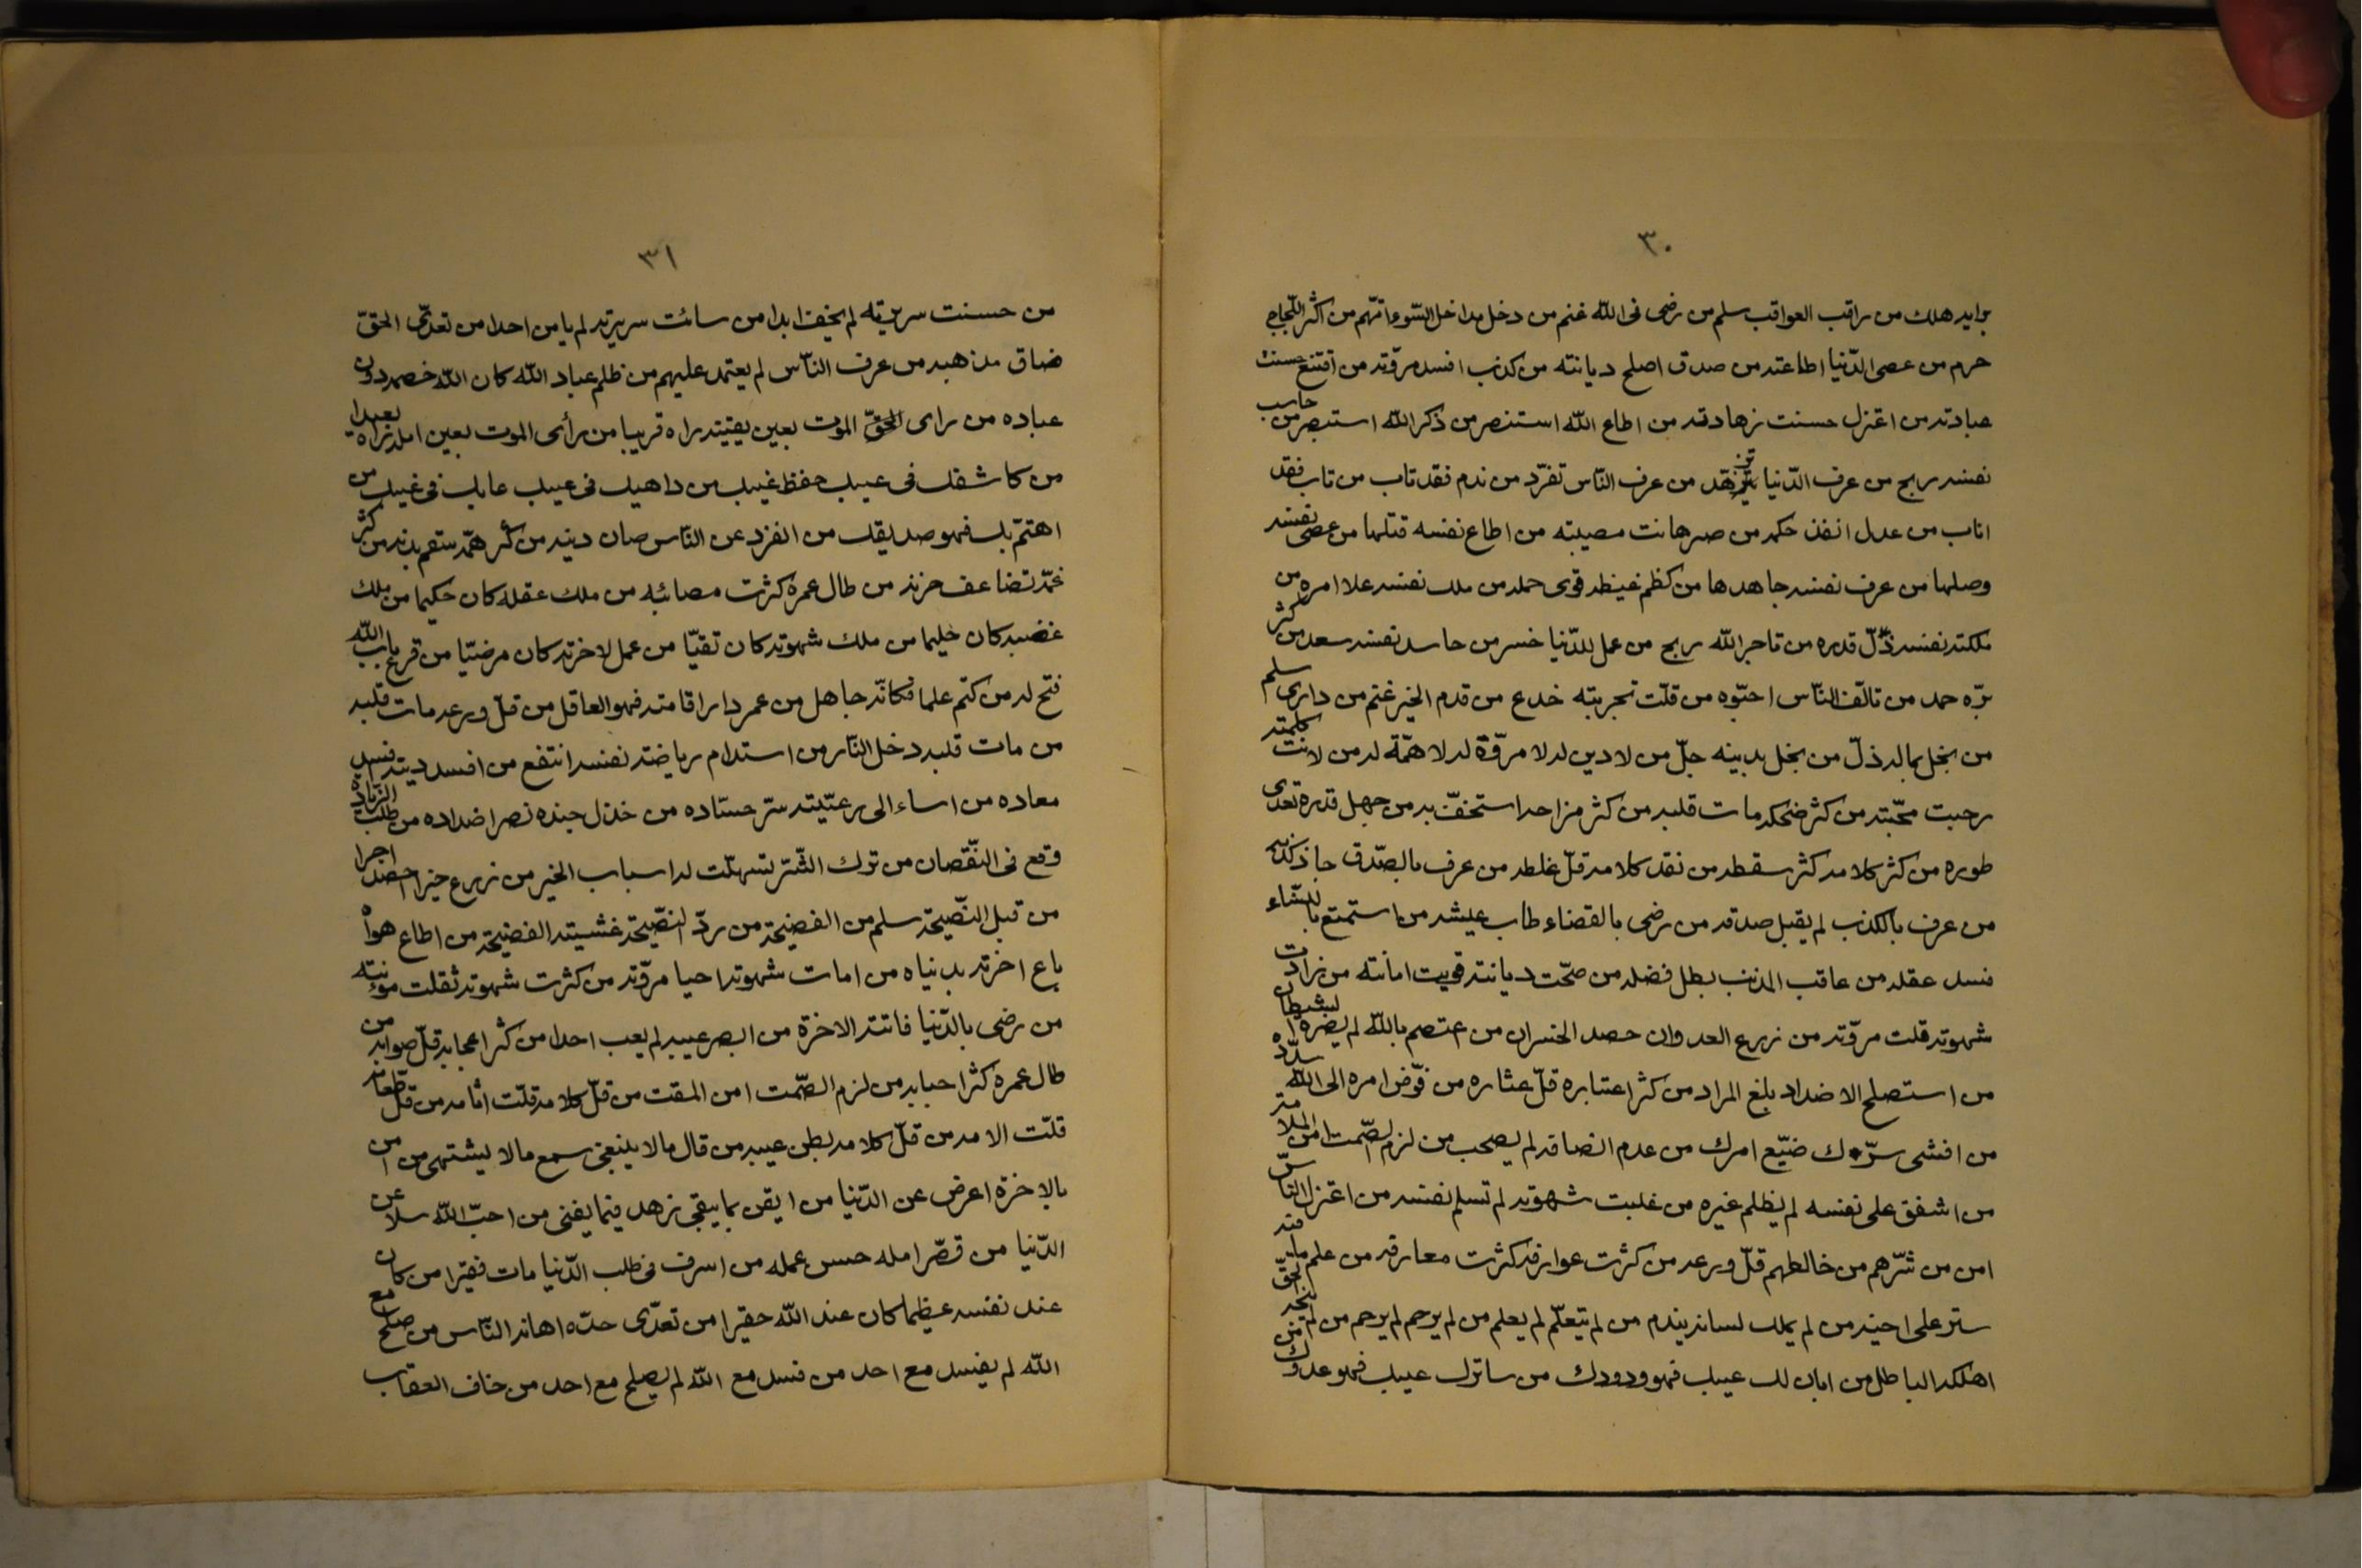 ٣٠
برايه هلك من راقب العواقب سلم من رضى فى اللّه غنم من دخل مداخل السّوء اتّهم من اكثر اللّجاج
حرم من عصى الدّنيا اطاعته من صدق اصلح ديانته من كذب افسد مروّته من اقتنع حسنت
عبادته من اعتزل حسنت زهادته من اطاع اللّه استنصر من ذكر اللّه استبصر من حاسب
نفسه ربح من عرف الدّنيا تزهّد من عرف النّاس تفرّد من ندم فقد تاب من تاب فقد
اناب من عدل انفذ حكمه من صبر هانت مصيبته من اطاع نفسه قتلها من عصى نفسه
وصلها من عرف نفسه جاهدها من كظم غيظه قوى حمله من ملك نفسه علا امره من
ملكته نفسه ذلّ قدره من تاجر اللّه ربح من عمل للدّنيا خسر من حاسد نفسه سعد من كثر
برّه حمد من تالّف النّاس احبّوه من قلّت تجربته خدع من قدم الخير غنم من دارى سلم
من بخل بماله ذلّ من بخل بدينه جلّ من لا دين له لا مروّة له لا همّة له من لانت كلمته
رحبت محبّته من كثر ضحكه مات قلبه من كثر مزاحه استخفّ به من جهل قدره تعدى
طوره من كثر كلامه كثر سقطه من نقد كلامه قلّ غلطه من عرف بالصّدق جاز كذبه
من عرف بالكذب لم يقبل صدقه من رضى بالقضاء طاب عيشه من استمتع بالنّساء
فسد عقله من عاقب المذنب بطل فضله من صحّت ديانته قويت امانته من زادت
شهوته قلت مروّته من زرع العدوان حصد الخسران من اعتصم باللّه لم يضره الشيطان
من استصلح الاضداد بلغ المراد من كثر اعتباره قلّ عثاره من فوّض امره الى اللّه سدّده
من افشى سرّك ضيّع امرك من عدم انصافه لم يصحب من لزم الصّمت امن الملامة
من اشفق على نفسه لم يظلم غيره من غلبت شهوته لم تسلم نفسه من اعتزل النّاس
امن من شرّهم من خالطهم قلّ ورعه من كثرت عوارفه كثرت معارفه من علم ما فيه
ستر على اخيه من لم يملك لسانه يندم من لم يتعلّم لم يعلم من لم يرحم لم يرحم من لم ينجه الحقّ
اهلكه الباطل من ابان لك عيبك فهو ودودك من ساترك عيبك فهو عدوّك
٣١
من حسنت سريرته لم يخف ابدا من سائت سريرته لم يامن احدا من تعدّى الحقّ
ضاق مذهبه من عرف النّاس لم يعتمد عليهم من ظلم عباد اللّه كان اللّه خصمه دون
عباده من راى الموت بعين يقينه راه قريبا من رأى الموت بعين امله راه بعيدا
من كاشفك فى عيبك حفظ غيبك من داهنك فى عيبك عابك فى غيبك من
اهتمّ بك فهو صديقك من انفرد عن النّاس صان دينه من كثر همّه سقم بدنه من كثر
غمّه تضاعف حزنه من طال عمره كثرت مصائبه من ملك عقله كان حكيما من ملك
غضبه كان حليما من ملك شهوته كان تقيّا من عمل لاخرته كان مرضيّا من قرع باب اللّه
فتح له من كتم علما فكانّه جاهل من عمر دار اقامته فهو العاقل من قلّ ورعه مات قلبه
من مات قلبه دخل النّار من استدام رياضة نفسه انتفع من افسد دينه فسد
معاده من اساء الى رعيّته سرّ حسّاده من خذل جنده نصر اضداده من طلب الزّيادة
وقع فى النّقصان من ترك الشّرّ تسهّلت له اسباب الخير من زرع خيرا حصد اجرا
من قبل النّصيحة سلم من الفضيحة من ردّ النصيحة غشيته الفضيحة من اطاع هواه
باع اخرته بدنياه من امات شهوته احيا مروّته من كثرت شهوته ثقلت مؤنته
من رضى بالدّنيا فاتته الاخرة من ابصر عيبه لم يعب احدا من كثر اعجابه قلّ صوابه من
طال عمره كثر احبابه من لزم الصّمت امن المقت من قلّ كلامه قلّت اثامه من قلّ طعامه
قلّت الامه من قلّ كلامه بطن عيبه من قال ما لا ينبغى سمع ما لا يشتهى من امن
بالاخرة اعرض عن الدّنيا من ايقن بما يبقى زهد فيما يفنى من احبّ اللّه سلا عن
الدّنيا من قصّر امله حسن عمله من اسرف فى طلب الدّنيا مات فقيرا من كان
عند نفسه عظيما كان عند اللّه حقيرا من تعدّى حدّه اهانه النّاس من صلح مع
اللّه لم يفسد مع احد من فسد مع اللّه لم يصلح مع احد من خاف العقاب